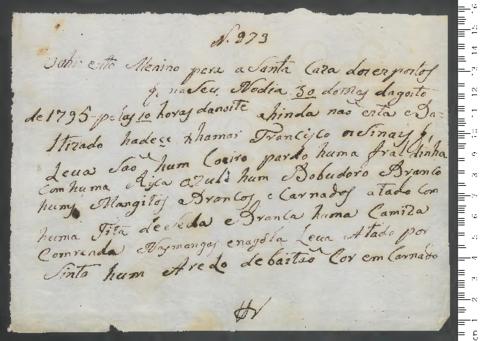 N. 973
este Menino pera a Santa Caza dos expostos
q naseu Nodia 30 domes dagosto
de 1795 pelas 10 horas danoite ahinda naõ está e Ba-
tizado hadese xhamar Francisco os Sinais q
Leva Saõ hum Coeiro pardo huma fraldinha
Com huma azul hum Bobudoro Branco
huns Mangitos e Brancos e Carnados atado Con
huma fita de e Branca huma Camiza
Com renda Nas mangas e nagola Leva Atado por
Sinto hum Aredo de Cor em Carnado